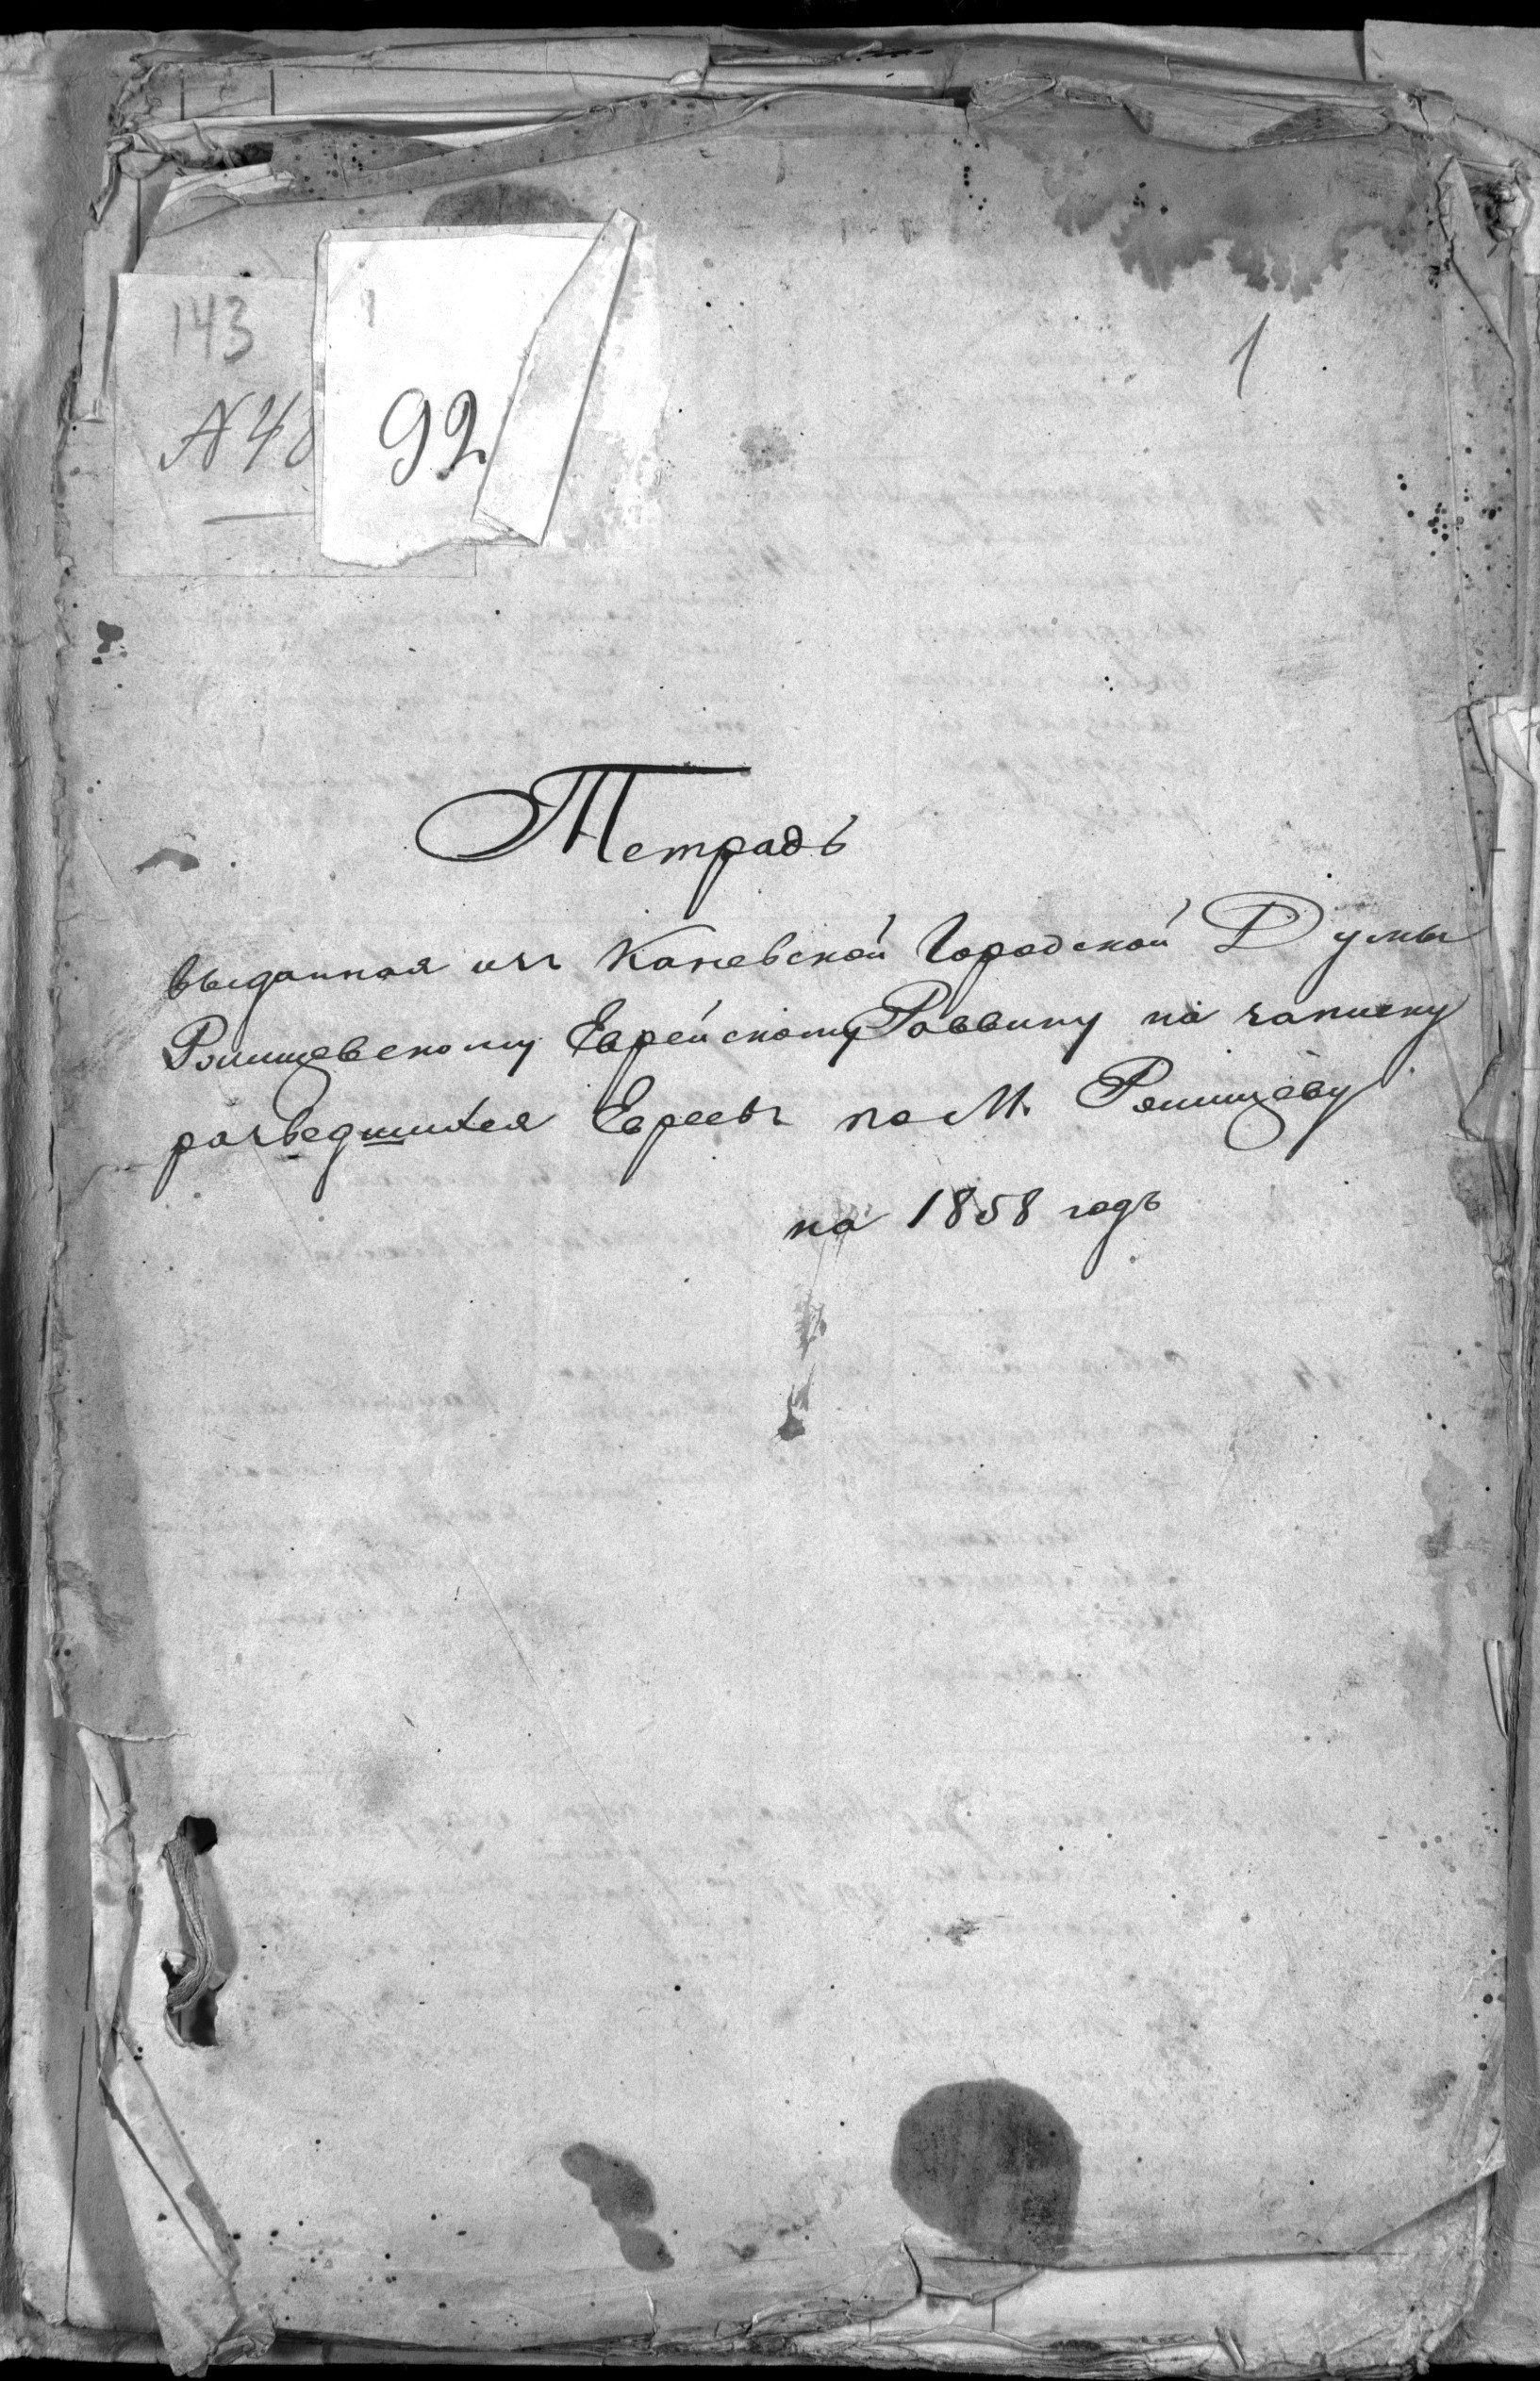 143
1
N 48
92
1
Тетрадь
выданная изъ Каневской Городской Думы
Ржищевскому Еврейскому Раввину на записку
разведшихся Евреевъ по М. Ржищеву
на 1858 годъ